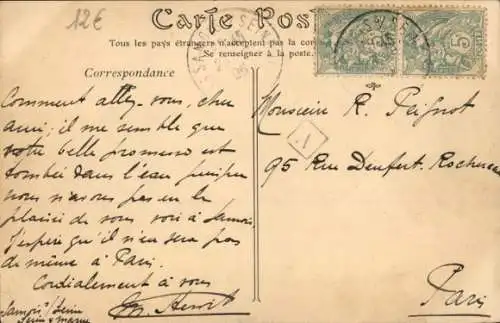 12€
Carte Pos
Tous les pays étrangers n'acceptent pas la cor
Se renseigner à la poste.
Correspondance
Comment allez-vous, cher
ami; il me semble que
votre belle promesse est
tombée dans l'eau puisque
nous n'avons pas eu le
plaisir de vous voir à Samois.
J'espère qu'il n'en sera pas
de même à Paris.
Cordialement à vous
Samois s/ Seine
Seine & Marne
Monsieur R. Peignot
A
95 Rue Denfert. Rochereau
Paris
5